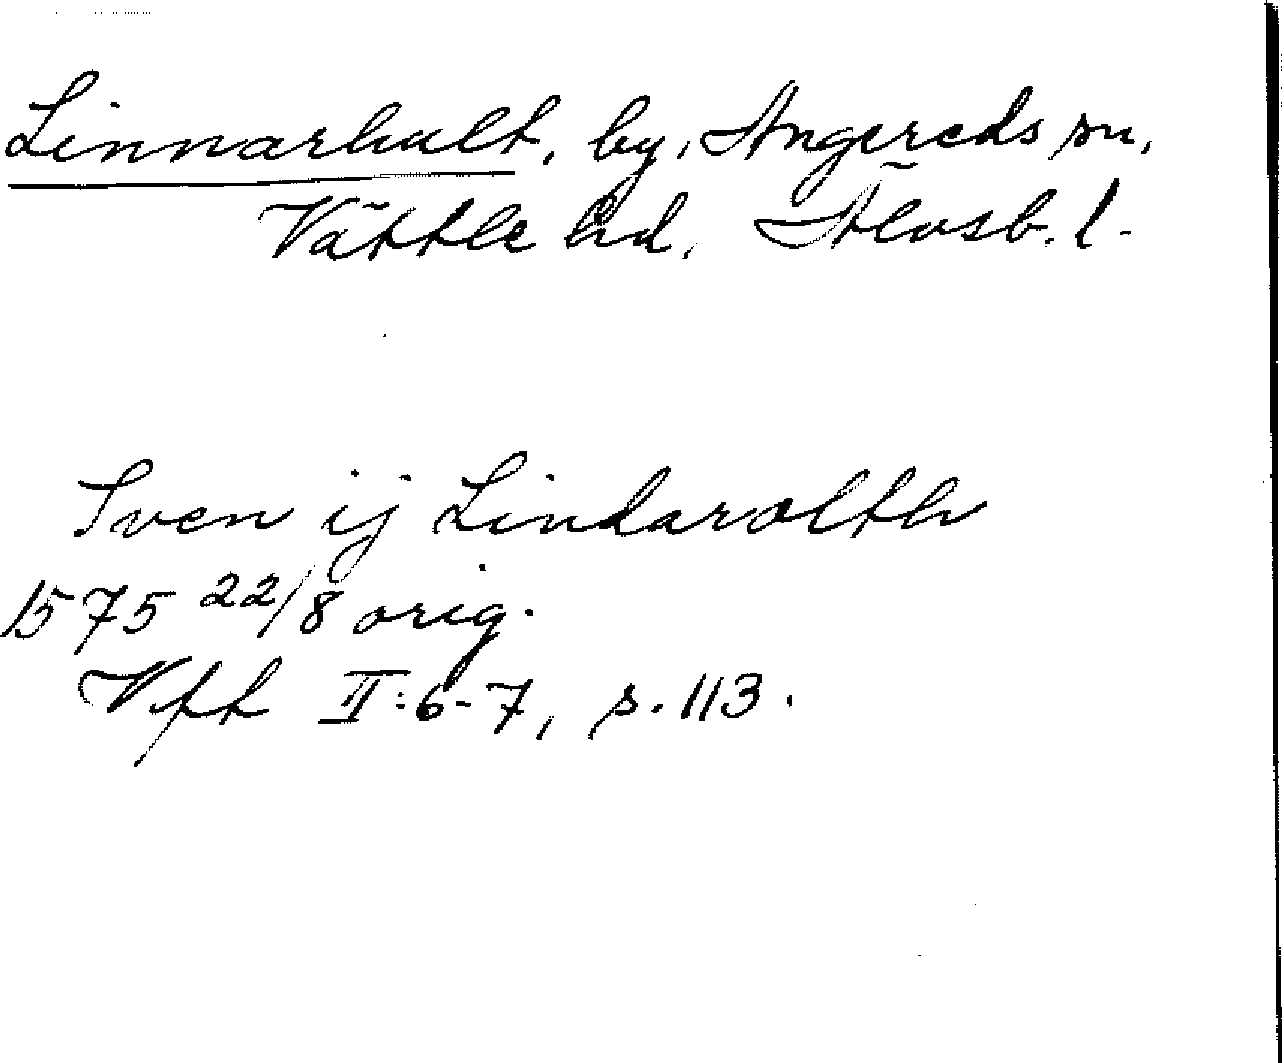 Linnarhult, by, Angereds sn,
Vättle hd, Älvsb. l.
Sven ij Lindarolth
1575 22/8 orig.
Vff II:6-7, s. 113.